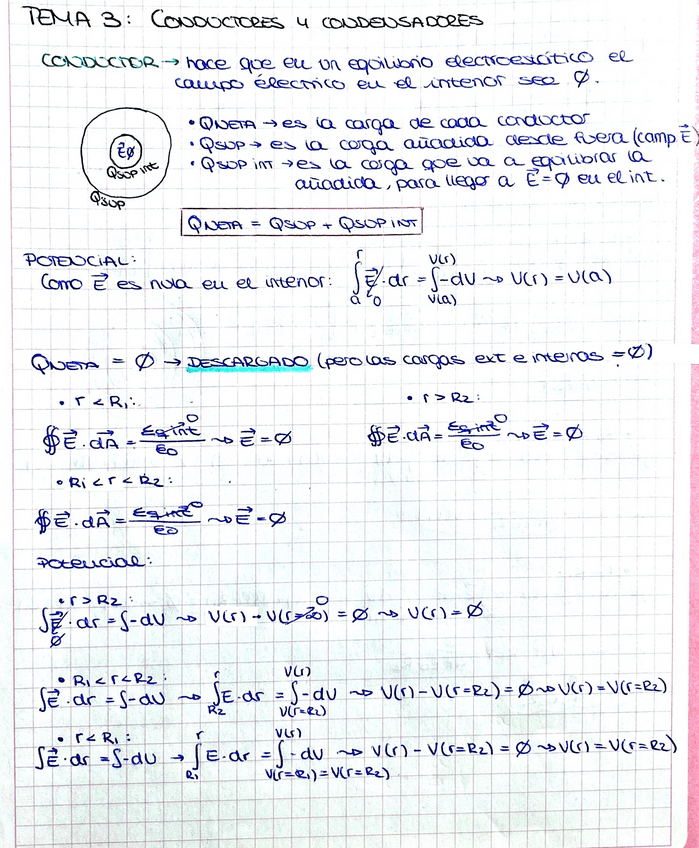 TEMA 3: CONDUCTORES Y CONDENSADORES
CONDUCTOR → hace que en un equilibrio electroestático el
campo électrico en el interior sea Ø.
E⃗Ø
QSUP INT
QSUP
• QNETA → es la carga de cada conductor
• QSUP → es la carga añadida desde fuera (camp E⃗)
• QSUP INT → es la carga que va a equilibrar la
añadida, para llegar a E⃗=Ø en el int.
QNETA = QSUP + QSUP INT
POTENCIAL:
Como E⃗ es nula en el interior: ∫ₐʳ E⃗·dr = ∫_{V(a)}^{V(r)} -dV ⇝ V(r) = V(a)
QNETA = Ø → DESCARGADO (pero las cargas ext e internas = Ø)
• r < R₁:
• r > R₂:
∯ E⃗·dA⃗ = Σq int⁰/ε₀ ⇝ E⃗ = Ø
∯ E⃗·dA⃗ = Σq int⁰/ε₀ ⇝ E⃗ = Ø
• R₁ < r < R₂:
∯ E⃗·dA⃗ = Σq int⁰/ε₀ ⇝ E⃗ = Ø
Potencial:
• r > R₂:
∫E⃗·dr = ∫-dV ⇝ V(r) - V(r→∞)⁰ = Ø ⇝ V(r) = Ø
Ø
• R₁ < r < R₂:
∫E⃗·dr = ∫-dV ⇝ ∫_{R₂}^{r} E·dr = ∫_{V(r=R₂)}^{V(r)} -dV ⇝ V(r) - V(r=R₂) = Ø ⇝ V(r) = V(r=R₂)
• r < R₁:
∫E⃗·dr = ∫-dV → ∫_{R₁}^{r} E·dr = ∫_{V(r=R₁)=V(r=R₂)}^{V(r)} -dV ⇝ V(r) - V(r=R₂) = Ø ⇝ V(r) = V(r=R₂)